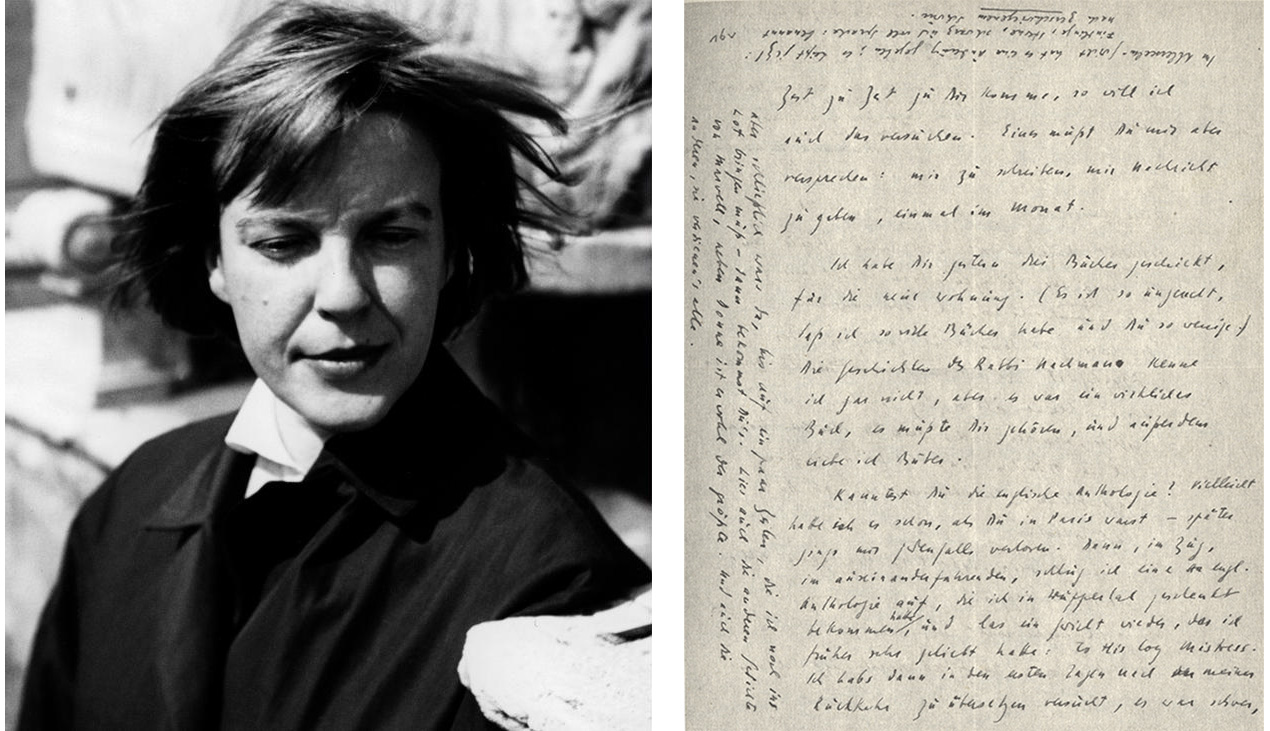 Zeit zu Zeit zu Dir komme, so will ich
auch das versuchen. Eines mußt Du mir aber
versprechen: mir zu schreiben, mir Nachricht
zu geben, einmal im Monat.
Ich habe Dir gestern drei Bücher geschickt,
für die neue Wohnung. (Es ist so ungerecht,
daß ich so viele Bücher habe und Du so wenige.)
Die Geschichten des Rabbi Nachman kenne
ich gar nicht, aber es war ein wirkliches
Buch, es mußte Dir gehören, und außerdem
liebe ich Buber.
Kanntest Du die englische Anthologie? Vielleicht
habe ich es schon, als Du in Paris warst – später
ging's mir jedenfalls verloren. Dann, im Zug,
im auseinanderfahrenden, schlug ich eine engl.
Anthologie auf, die ich in Wuppertal geschenkt
bekommen habe, und las ein Gedicht wieder, das ich
früher sehr geliebt habe: To His Coy Mistress.
Ich habs dann in den ersten Tagen nach meiner
Rückkehr zu übersetzen versucht, es war schwer,
aber schließlich war's da, bis auf ein paar Zeilen, die ich noch ins
Lot bringen muß – dann bekommst Du's. Lies auch die anderen Gedichte
von Marvell, neben Donne ist er wohl der größte. Und auch die
anderen, sie verdienen's alle.
Im Allerseelen-Gedicht hat es eine Änderung gegeben; es heißt jetzt:
Findlinge, Sterne, schwarz und voll Sprache: benannt
nach zerschwiegenem Schwure.